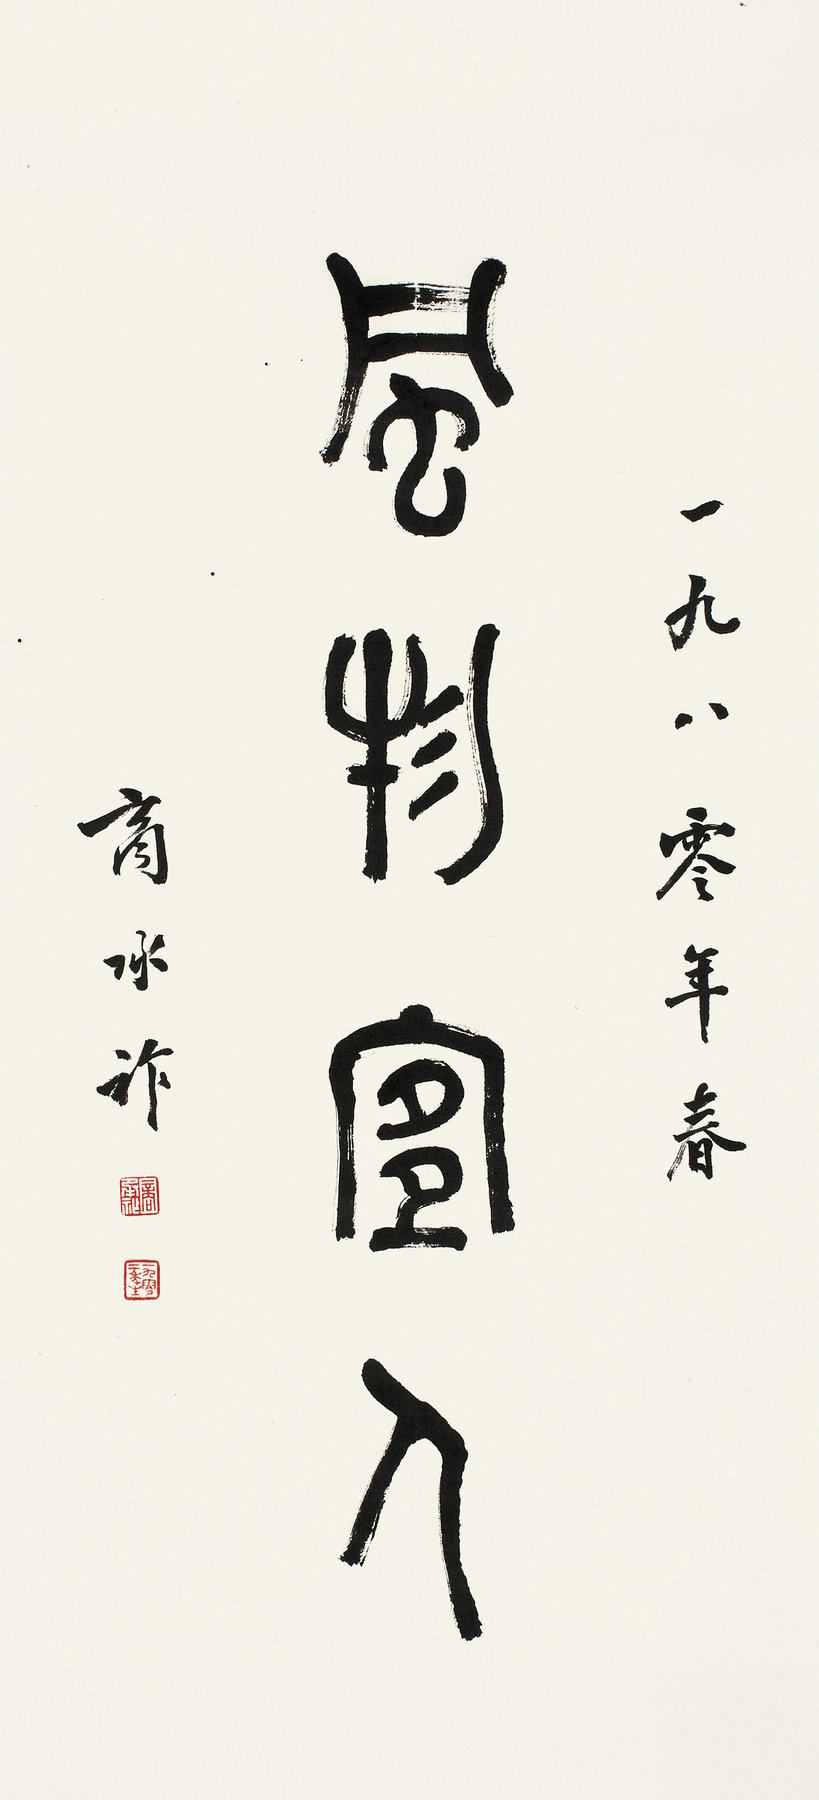 一九八零年春
風物宜人
商承祚